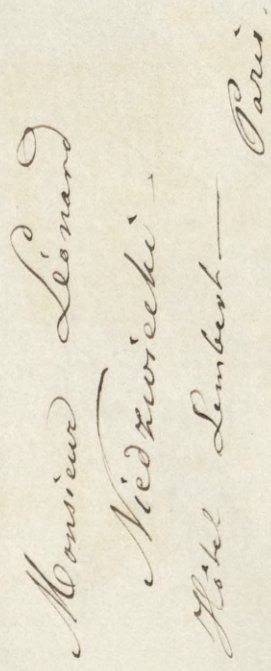 Monsieur Léonard
Niedzwiecki -
Hôtel Lambert—
Paris.